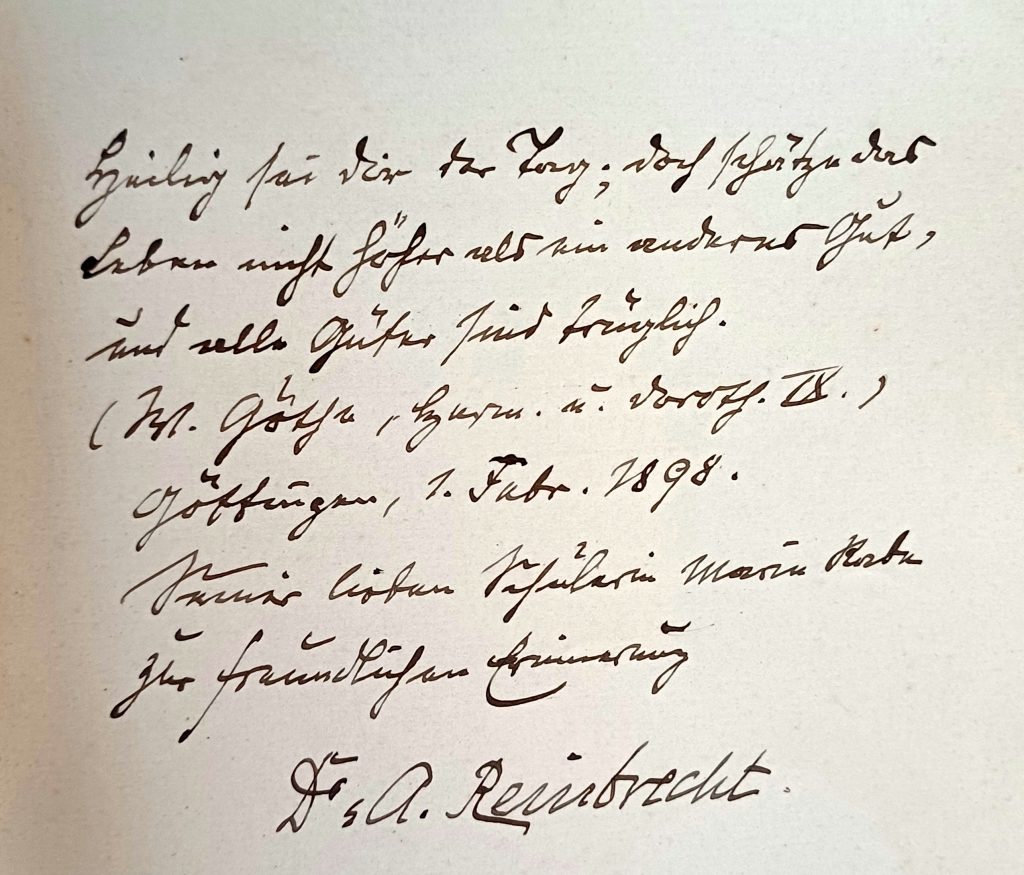 Heilig sei dir der Tag; doch schätze das
Leben nicht höher als ein anderes Gut,
und alle Güter sind trüglich.
(W. Göthe, Herm. u. Doroth. IX.)
Göttingen, 1. Febr. 1898.
Seiner lieben Schülerin Marie Rabe
zur freundlichen Erinnerung
Dr. A. Reinbrecht.